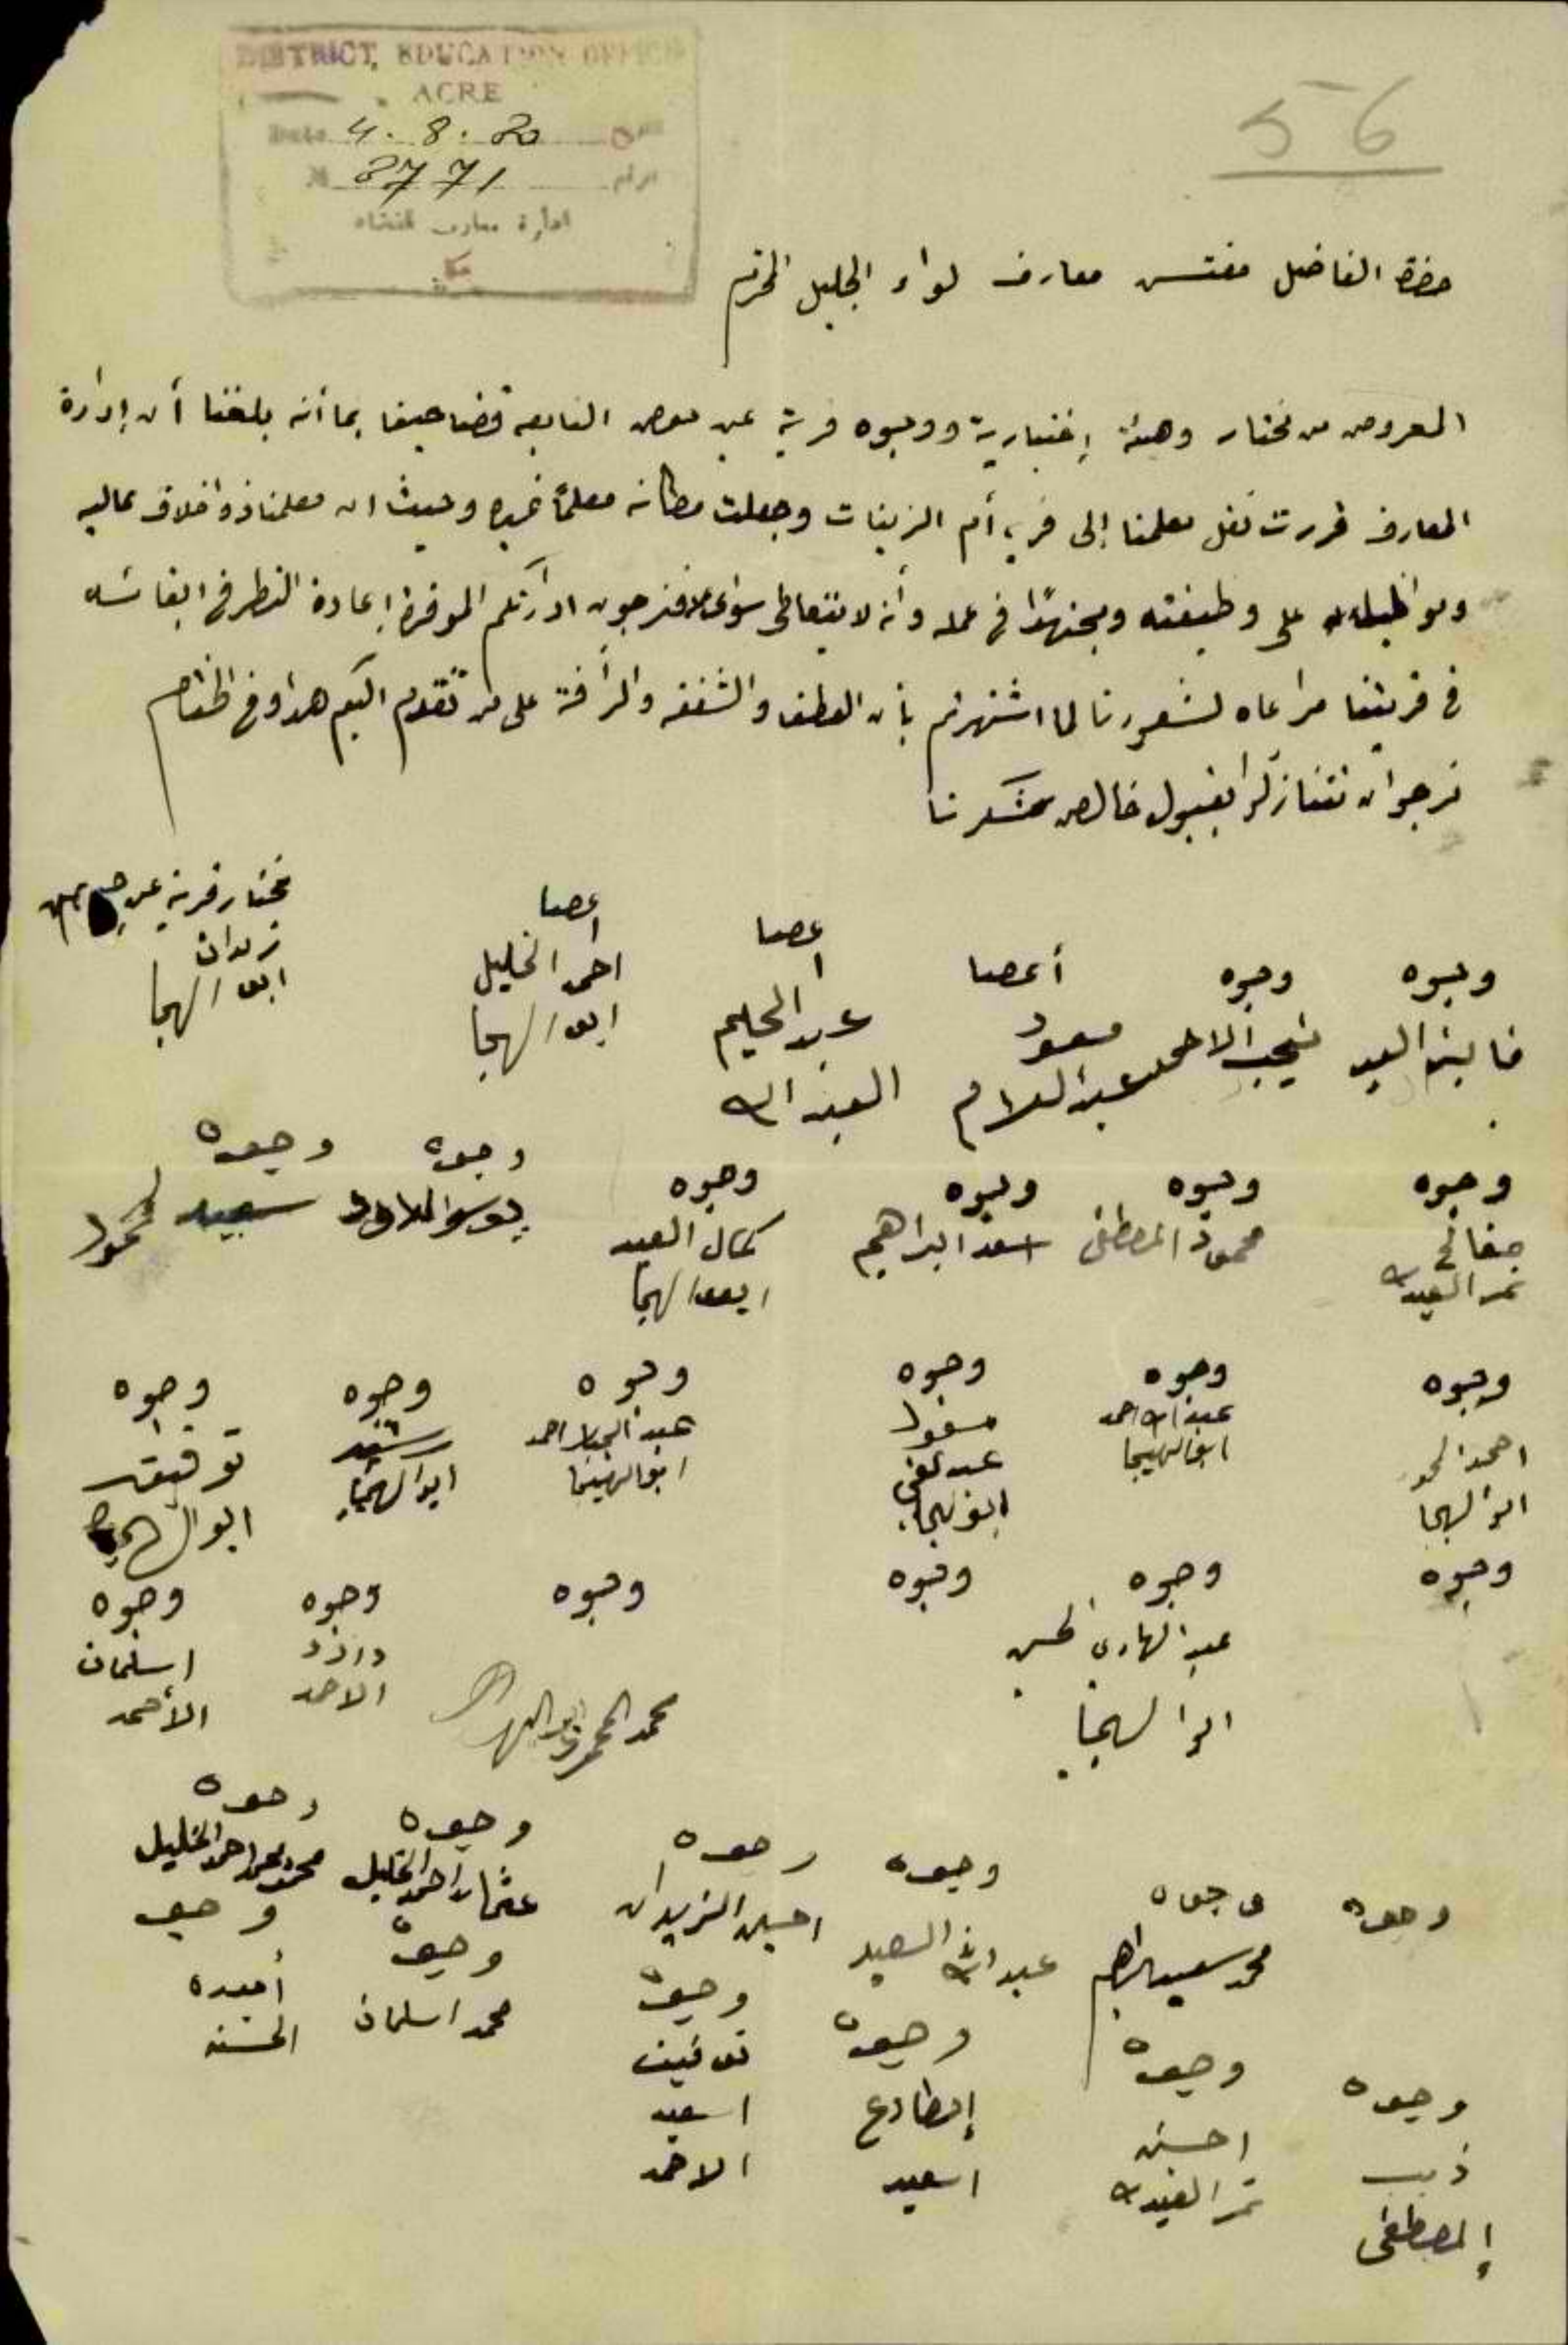 DISTRICT EDUCATION OFFICE
ACRE
Date 4. 8. 20
№ 2771 الرقم
ادارة معارف
عكا
56
حضرة الفاضل مفتش معارف لواء الجليل المحترم
المعروض من مختار وهيئة إختيارية ووجوه قرية عين حوض التابعه قضا حيفا بما أنه بلغنا أن إدارة
المعارف قررت نقل معلمنا إلى قرية أم الزينات وجعلت مكانه معلماً غيره وحيث ان معلمنا ذو اخلاق عاليه
على وظيفته ومجتهدًا في عمله وأنه لا يتعاطى ادارتكم الموقره إعادة النظر في ابقائه
في قريتنا مراعاه لشعورنا لما اشتهرتم بأن العطف والشفقه والرأفة على من تقدم اليكم هذا وفي الختام
نرجو ان تتنازلوا بقبول خالص تشكرنا
مختار قرية عين حوض
زيدان
ابو الهيجا
اعضا
احمد الخليل
ابو الهيجا
اعضا
عبد الحليم
العبد الله
أعضا
مسعود
عبد السلام
وجوه
نجيب الاحمد
وجوه
العبد
وجوه
نمر العبدالله
وجوه
محمود المصطفى
وجوه
اسعد ابراهيم
وجوه
كمال العبد
ابو الهيجا
وجوه
وجوه
سعيد محمود
وجوه
احمد
ابو الهيجا
وجوه
عبد الله احمد
ابو الهيجا
وجوه
مسعود
عبد الغني
ابو الهيجا
وجوه
عبد الجبار احمد
ابو الهيجا
وجوه
رشيد
ابو الهيجا
وجوه
توفيق
ابو الهيجا
وجوه
وجوه
عبد الهادي الحسن
ابو الهيجا
وجوه
وجوه
محمد المحمود ابو الهيجا
وجوه
داوود
الاحمد
وجوه
اسلمان
الأحمد
وجوه
وجوه
محمد سعيد ابراهيم
وجوه
عبد الله السعيد
وجوه
احسين الزيدان
وجوه
عثمان احمد الخليل
وجوه
محمد احمد الخليل
وجوه
ذيب
المصطفى
وجوه
احسين
نمر العبدالله
وجوه
اسعيد
وجوه
توفيق
اسعيد
الاحمد
وجوه
محمد اسلمان
وجوه